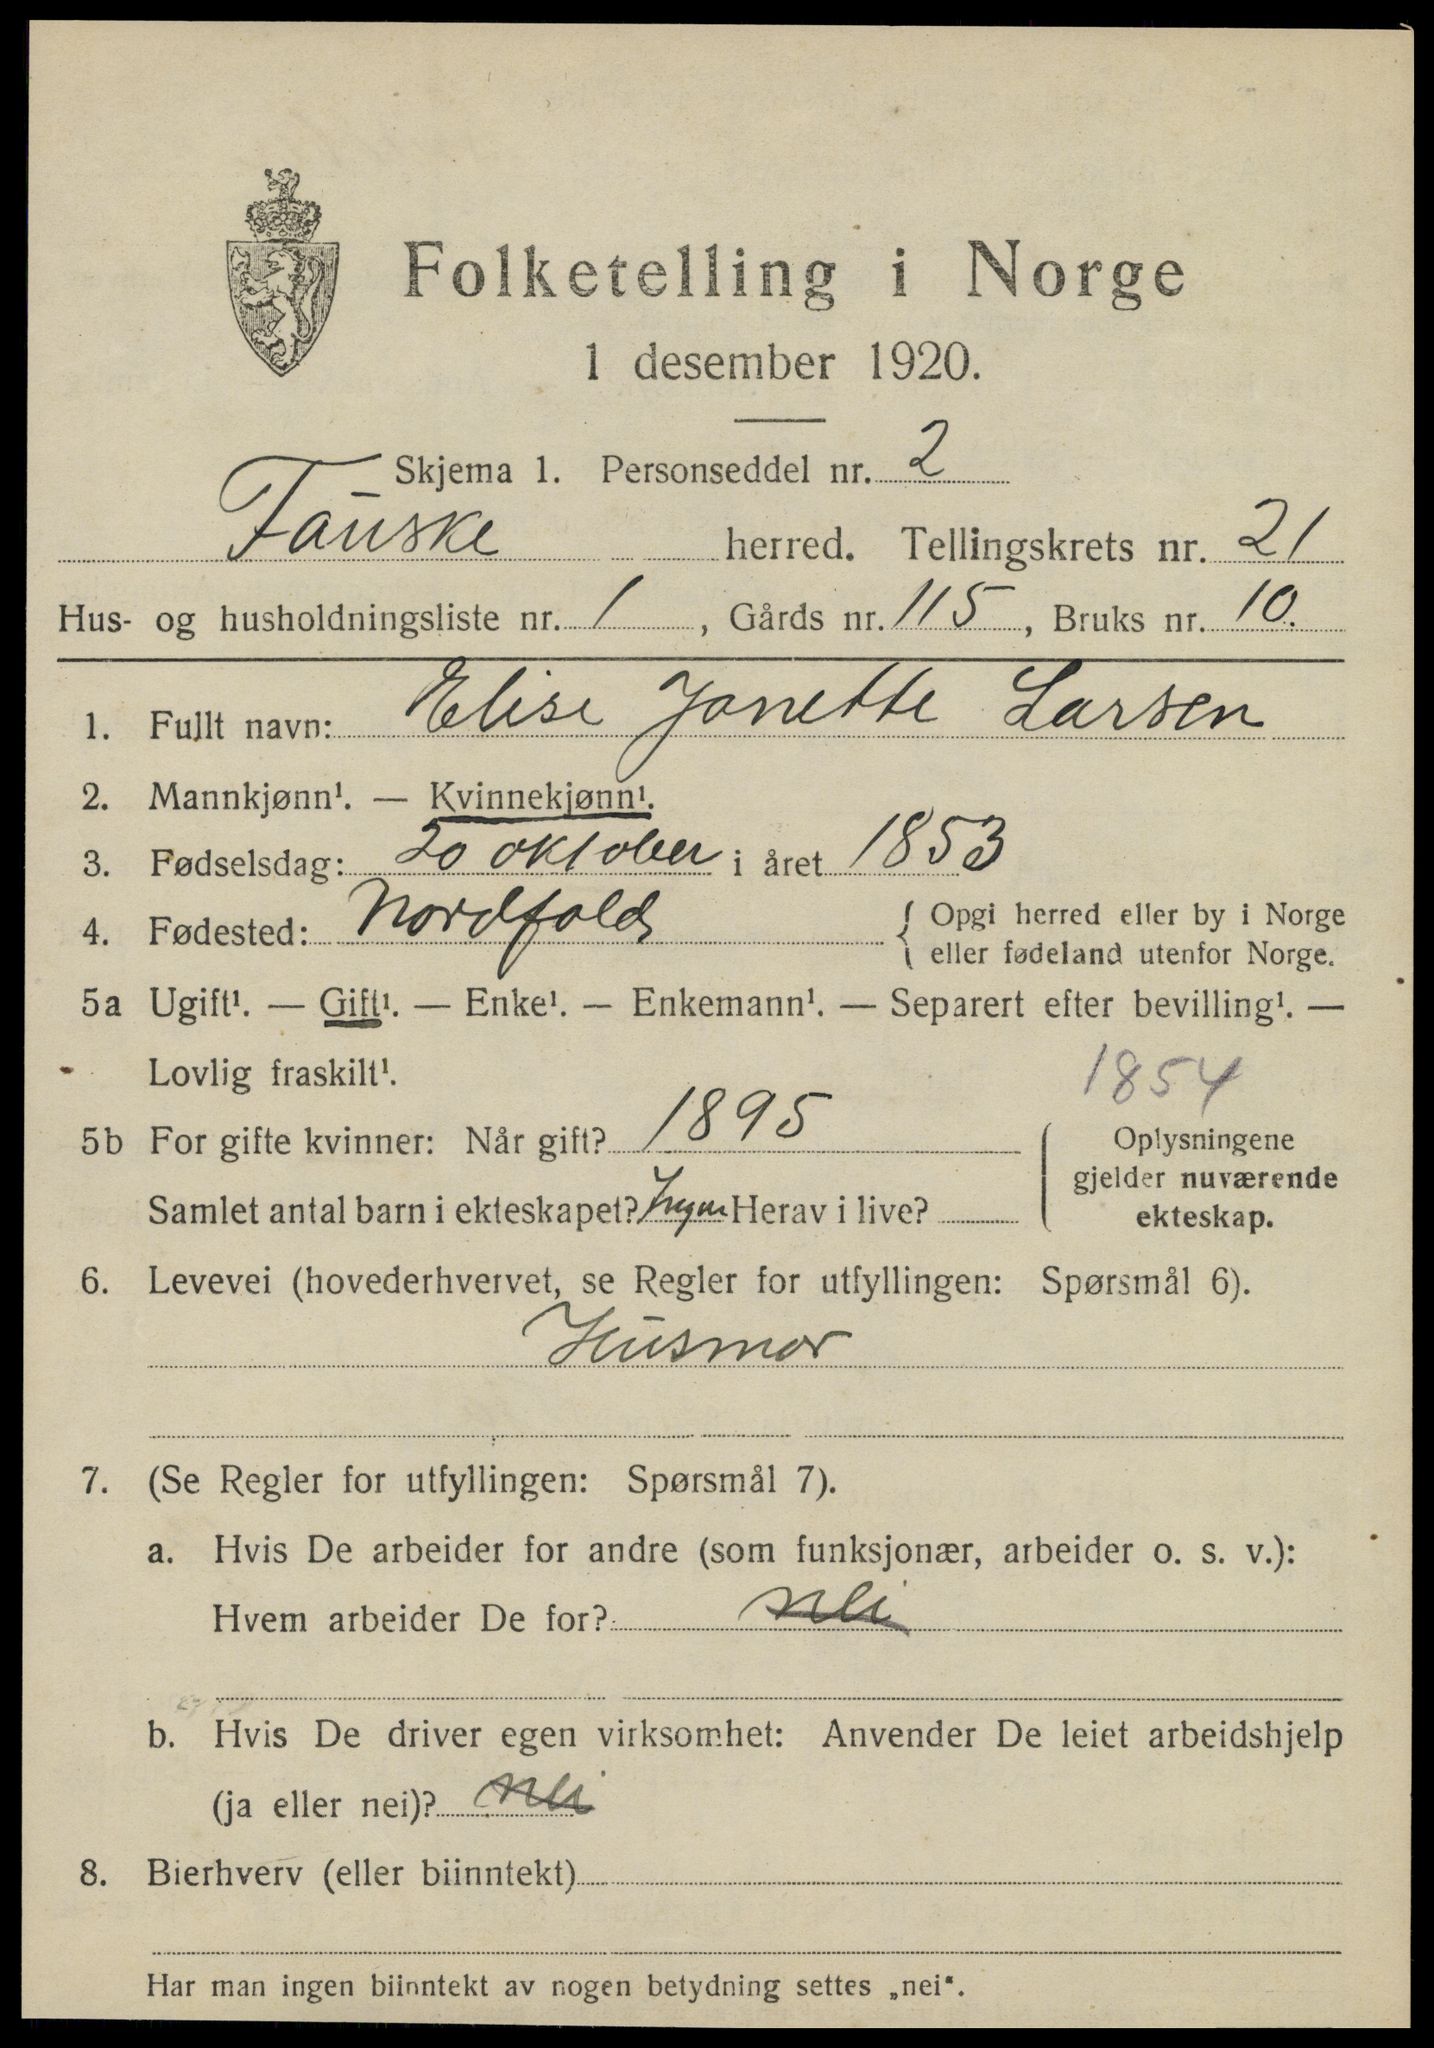 Folketelling i Norge
1 desember 1920.
Skjema 1. Personseddel nr. 2
Fauske herred. Tellingskrets nr. 21
Hus- og husholdningsliste nr. 1, Gårds nr. 115, Bruks nr. 10.
1. Fullt navn: Elise Janette Larsen
2. Mannkjønn¹. — Kvinnekjønn¹.
3. Fødselsdag: 20 oktober i året 1853
4. Fødested: Nordfold { Opgi herred eller by i Norge
eller fødeland utenfor Norge.
5a Ugift¹. — Gift¹. — Enke¹. — Enkemann¹. — Separert efter bevilling¹. —
Lovlig fraskilt¹.
1854
5b For gifte kvinner: Når gift? 1895
Samlet antal barn i ekteskapet? Ingen Herav i live?
{ Oplysningene
gjelder nuværende
ekteskap.
6. Levevei (hovederhvervet, se Regler for utfyllingen: Spørsmål 6).
Husmor
7. (Se Regler for utfyllingen: Spørsmål 7).
a. Hvis De arbeider for andre (som funksjonær, arbeider o. s. v.):
Hvem arbeider De for? nei
b. Hvis De driver egen virksomhet: Anvender De leiet arbeidshjelp
(ja eller nei)? nei
8. Bierhverv (eller biinntekt)
Har man ingen biinntekt av nogen betydning settes „nei".